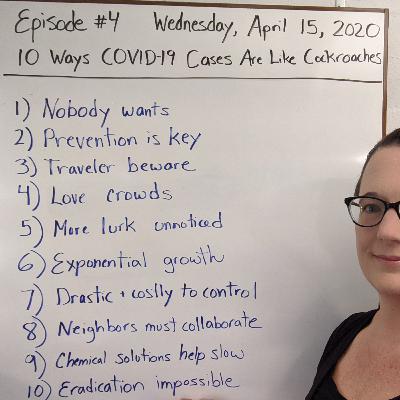 Episode #4 Wednesday, April 15, 2020
10 Ways COVID-19 Cases Are Like Cockroaches
1) Nobody wants
2) Prevention is key
3) Traveler beware
4) Love crowds
5) More lurk unnoticed
6) Exponential growth
7) Drastic + costly to control
8) Neighbors must collaborate
9) Chemical solutions help slow
10) Eradication impossible